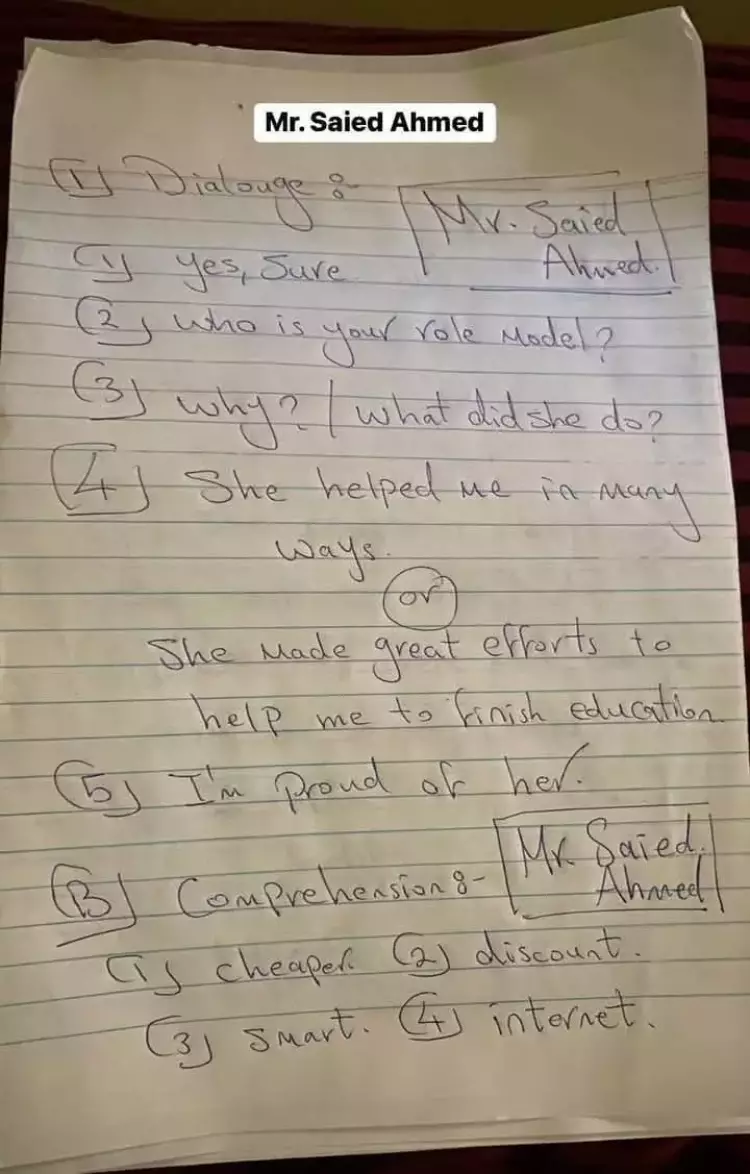 Mr. Saied Ahmed
(1) Dialouge :-
Mr. Saied
Ahmed.
(1) yes, Sure
(2) who is your role Model?
(3) why? / what did she do?
(4) She helped Me in Many
ways.
or
She Made great efforts to
help me to finish education
(5) I'm proud of her.
(B) Comprehension :-
Mr. Saied.
Ahmed
(1) cheaper. (2) discount.
(3) smart. (4) internet.